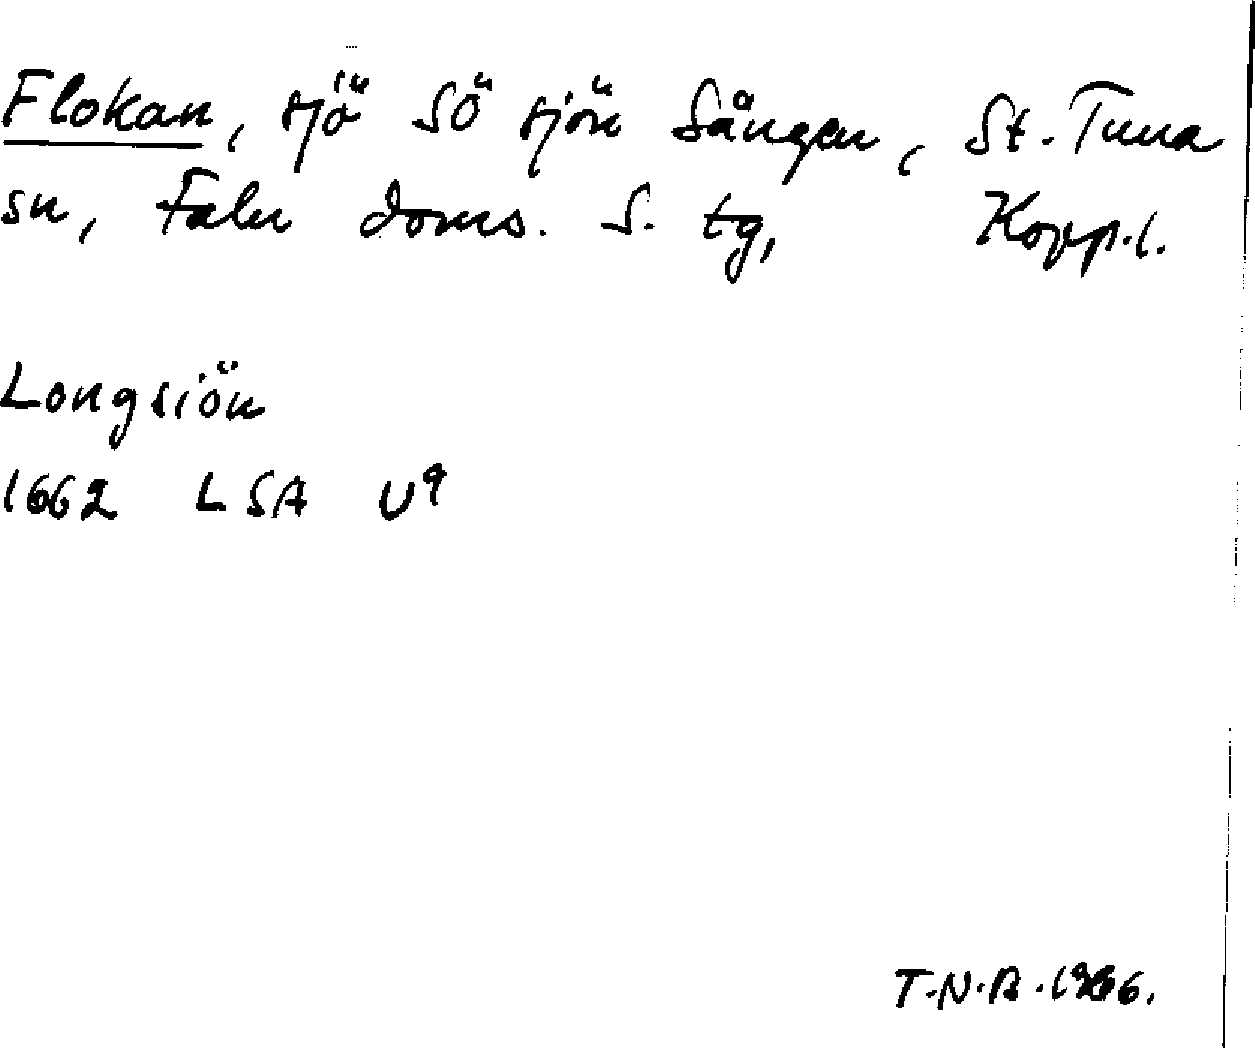 Flokan, sjö SÖ sjön Sången, St. Tuna
sn, Falu doms. S. tg, Kopp.l.
Longsiön
1662 LSA U9
T.N.B.